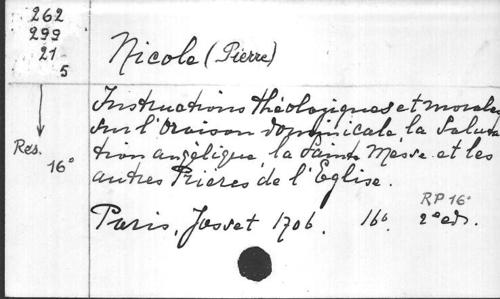 262
299
21
5
Nicole (Pierre)
Instructions théologiques et morales
sur l'Oraison dominicale, la Saluta
tion angélique, la Sainte Messe et les
autres Prières de l'Eglise.
Res.
16°
RP 16°
Paris, Josset 1706. 16° 2e ed.